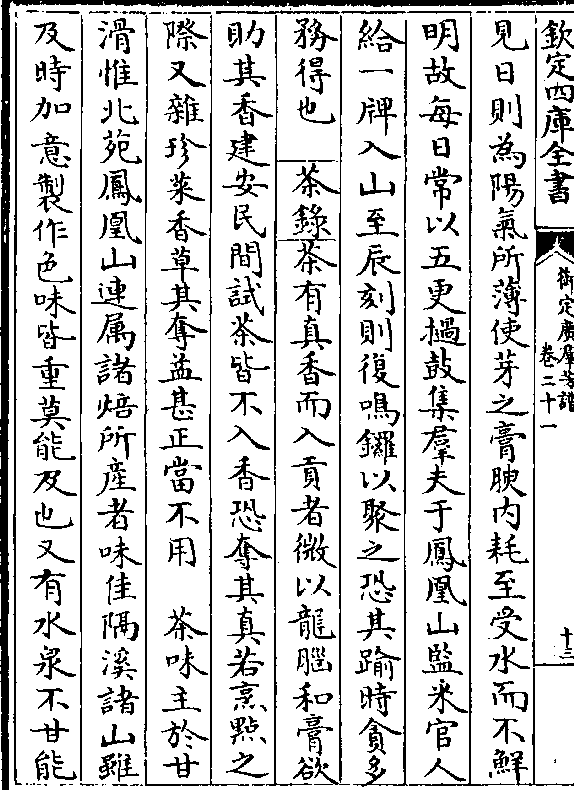 欽定四庫全書
御定廣羣芳譜
卷二十一
十三
見日則為陽氣所薄使芽之膏腴内耗至受水而不鮮
明故每日常以五更撾鼓集羣夫于鳳凰山監采官人
給一牌入山至辰刻則復鳴鑼以聚之恐其踰時貪多
務得也　茶錄茶有真香而入貢者微以龍腦和膏欲
助其香建安民間試茶皆不入香恐奪其真若烹點之
際又雜珍菓香草其奪益甚正當不用　茶味主於甘
滑惟北苑鳳凰山連属諸焙所産者味佳隔溪諸山雖
及時加意製作色味皆重莫能及也又有水泉不甘能